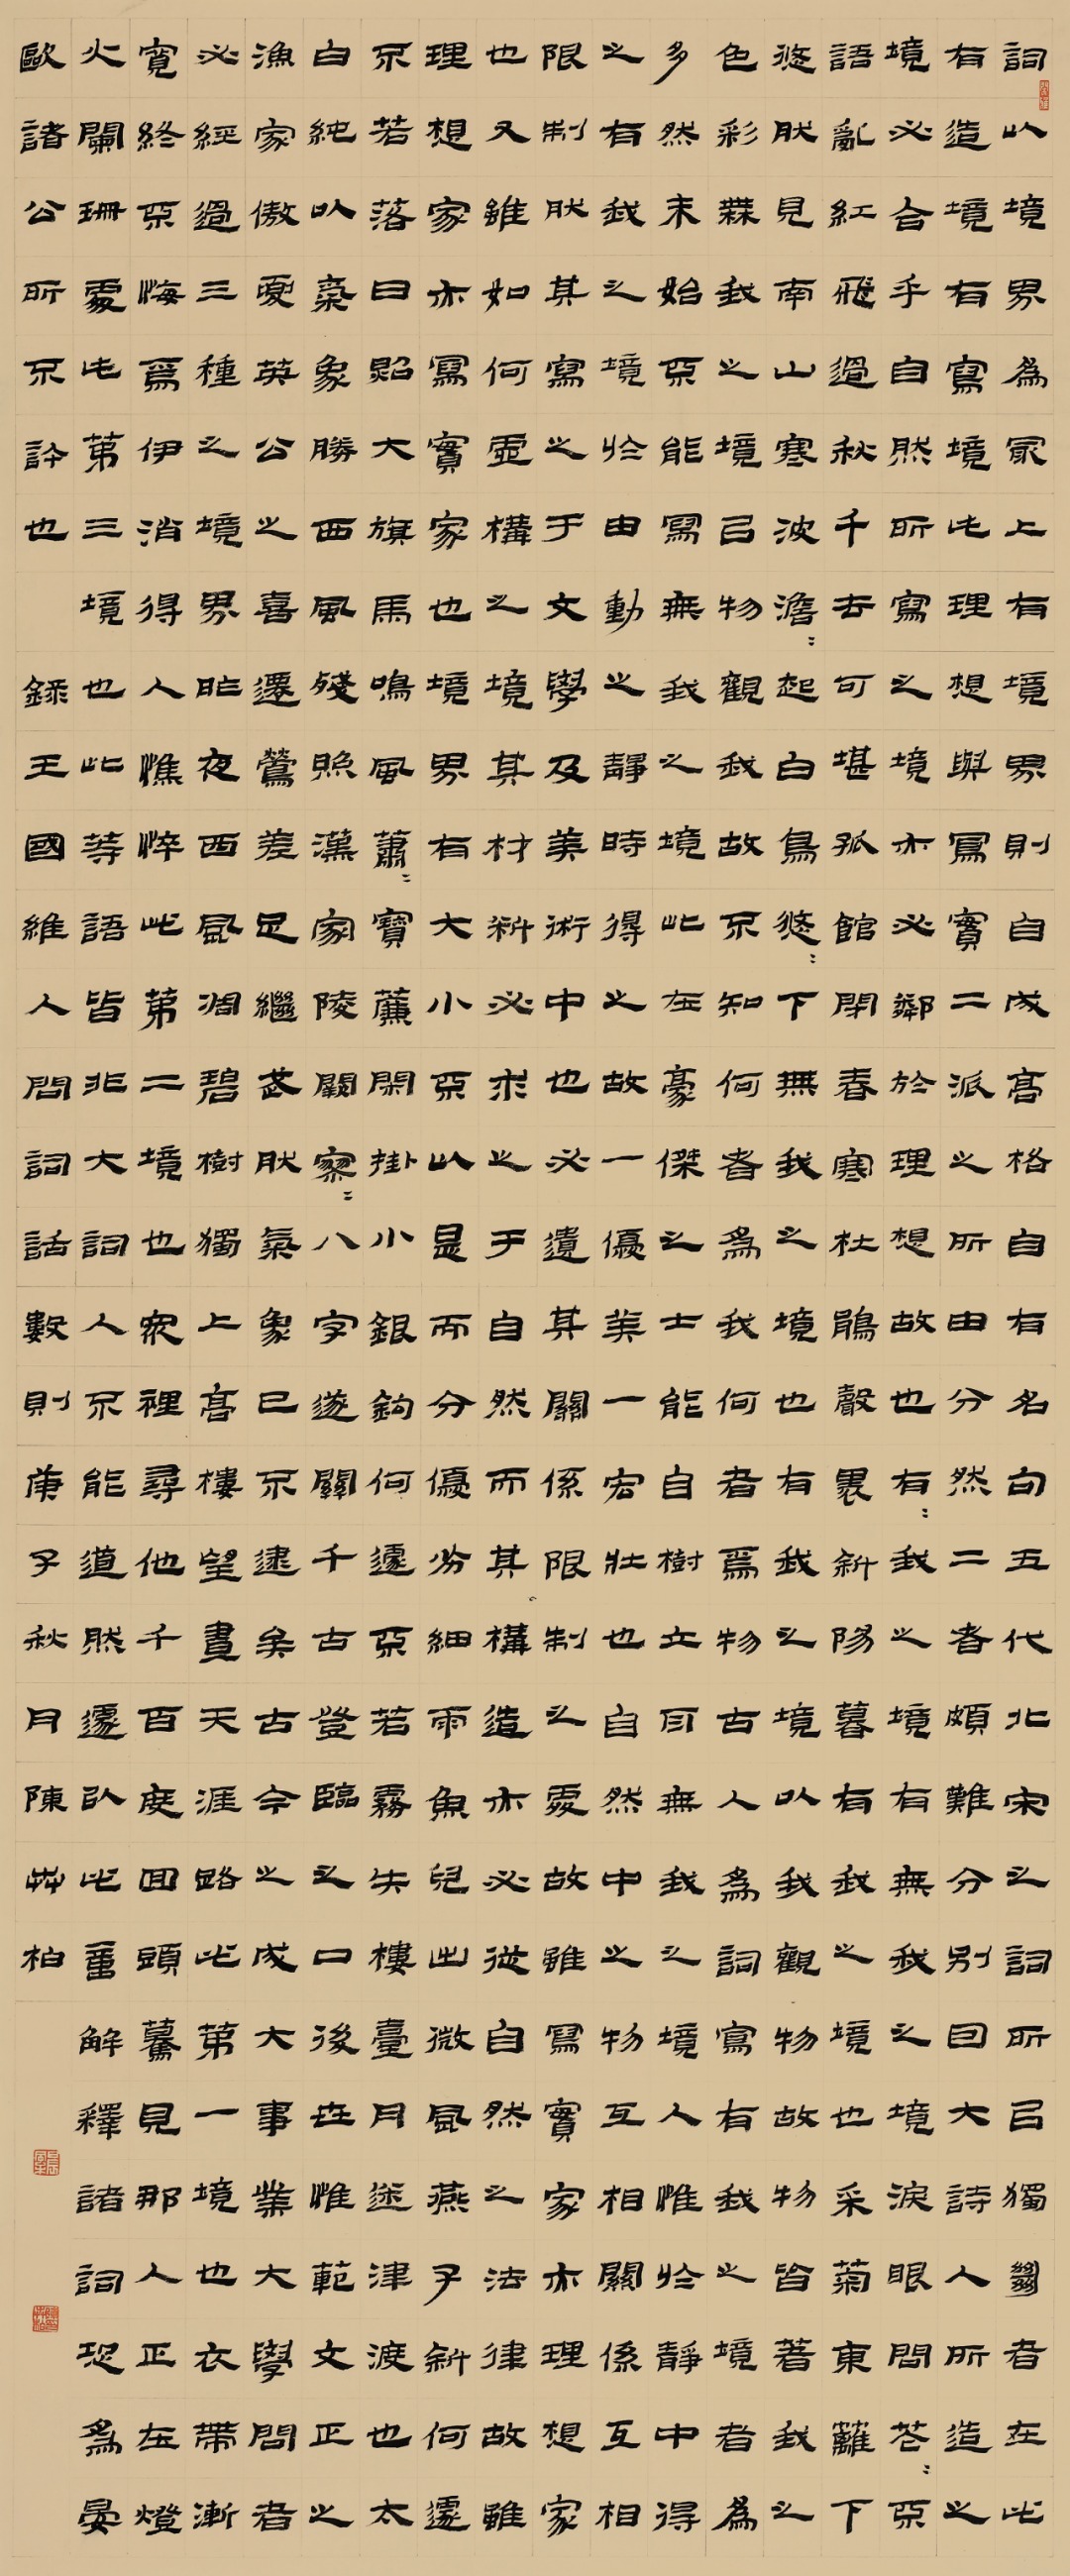 詞以境界為冣上有境界則自成高格自有名句五代北宋之詞所㠯獨絕者在此
有造境有寫境此理想與寫實二派之所由分然二者頗難分別因大詩人所造之
境必合乎自然所寫之境亦必鄰於理想故也有〻我之境有無我之境淚眼問花〻不
語亂紅飛過秋千去可堪孤館閉春寒杜鵑聲裏斜陽暮有我之境也采菊東籬下
悠然見南山寒波澹〻起白鳥悠〻下無我之境也有我之境以我觀物故物皆著我之
色彩無我之境㠯物觀我故不知何者為我何者為物古人為詞寫有我之境者為
多然未始不能寫無我之境此在豪傑之士能自樹立耳無我之境人惟於靜中得
之有我之境於由動之靜時得之故一優美一宏壯也自然中之物互相關係互相
限制然其寫之于文學及美術中也必遺其關係限制之處故雖寫實家亦理想家
也又雖如何虛構之境其材料必求之于自然而其構造亦必從自然之法律故雖
理想家亦寫實家也境界有大小不以是而分優劣細雨魚兒出微風燕子斜何遽
不若落日照大旗馬鳴風蕭〻寶簾閒掛小銀鉤何遽不若霧失樓臺月迷津渡也太
白純以氣象勝西風殘照漢家陵闕寥〻八字遂關千古登臨之口後世惟範文正之
漁家傲夏英公之喜遷鶯差足繼武然氣象已不逮矣古今之成大事業大學問者
必經過三種之境界昨夜西風凋碧樹獨上高樓望盡天涯路此第一境也衣帶漸
寬終不悔為伊消得人憔悴此第二境也眾裡尋他千百度回頭驀見那人正在燈
火闌珊處此第三境也此等語皆非大詞人不能道然遽以此意解釋諸詞恐為晏
歐諸公所不許也 錄王國維人間詞話數則庚子秋月陳艸柏